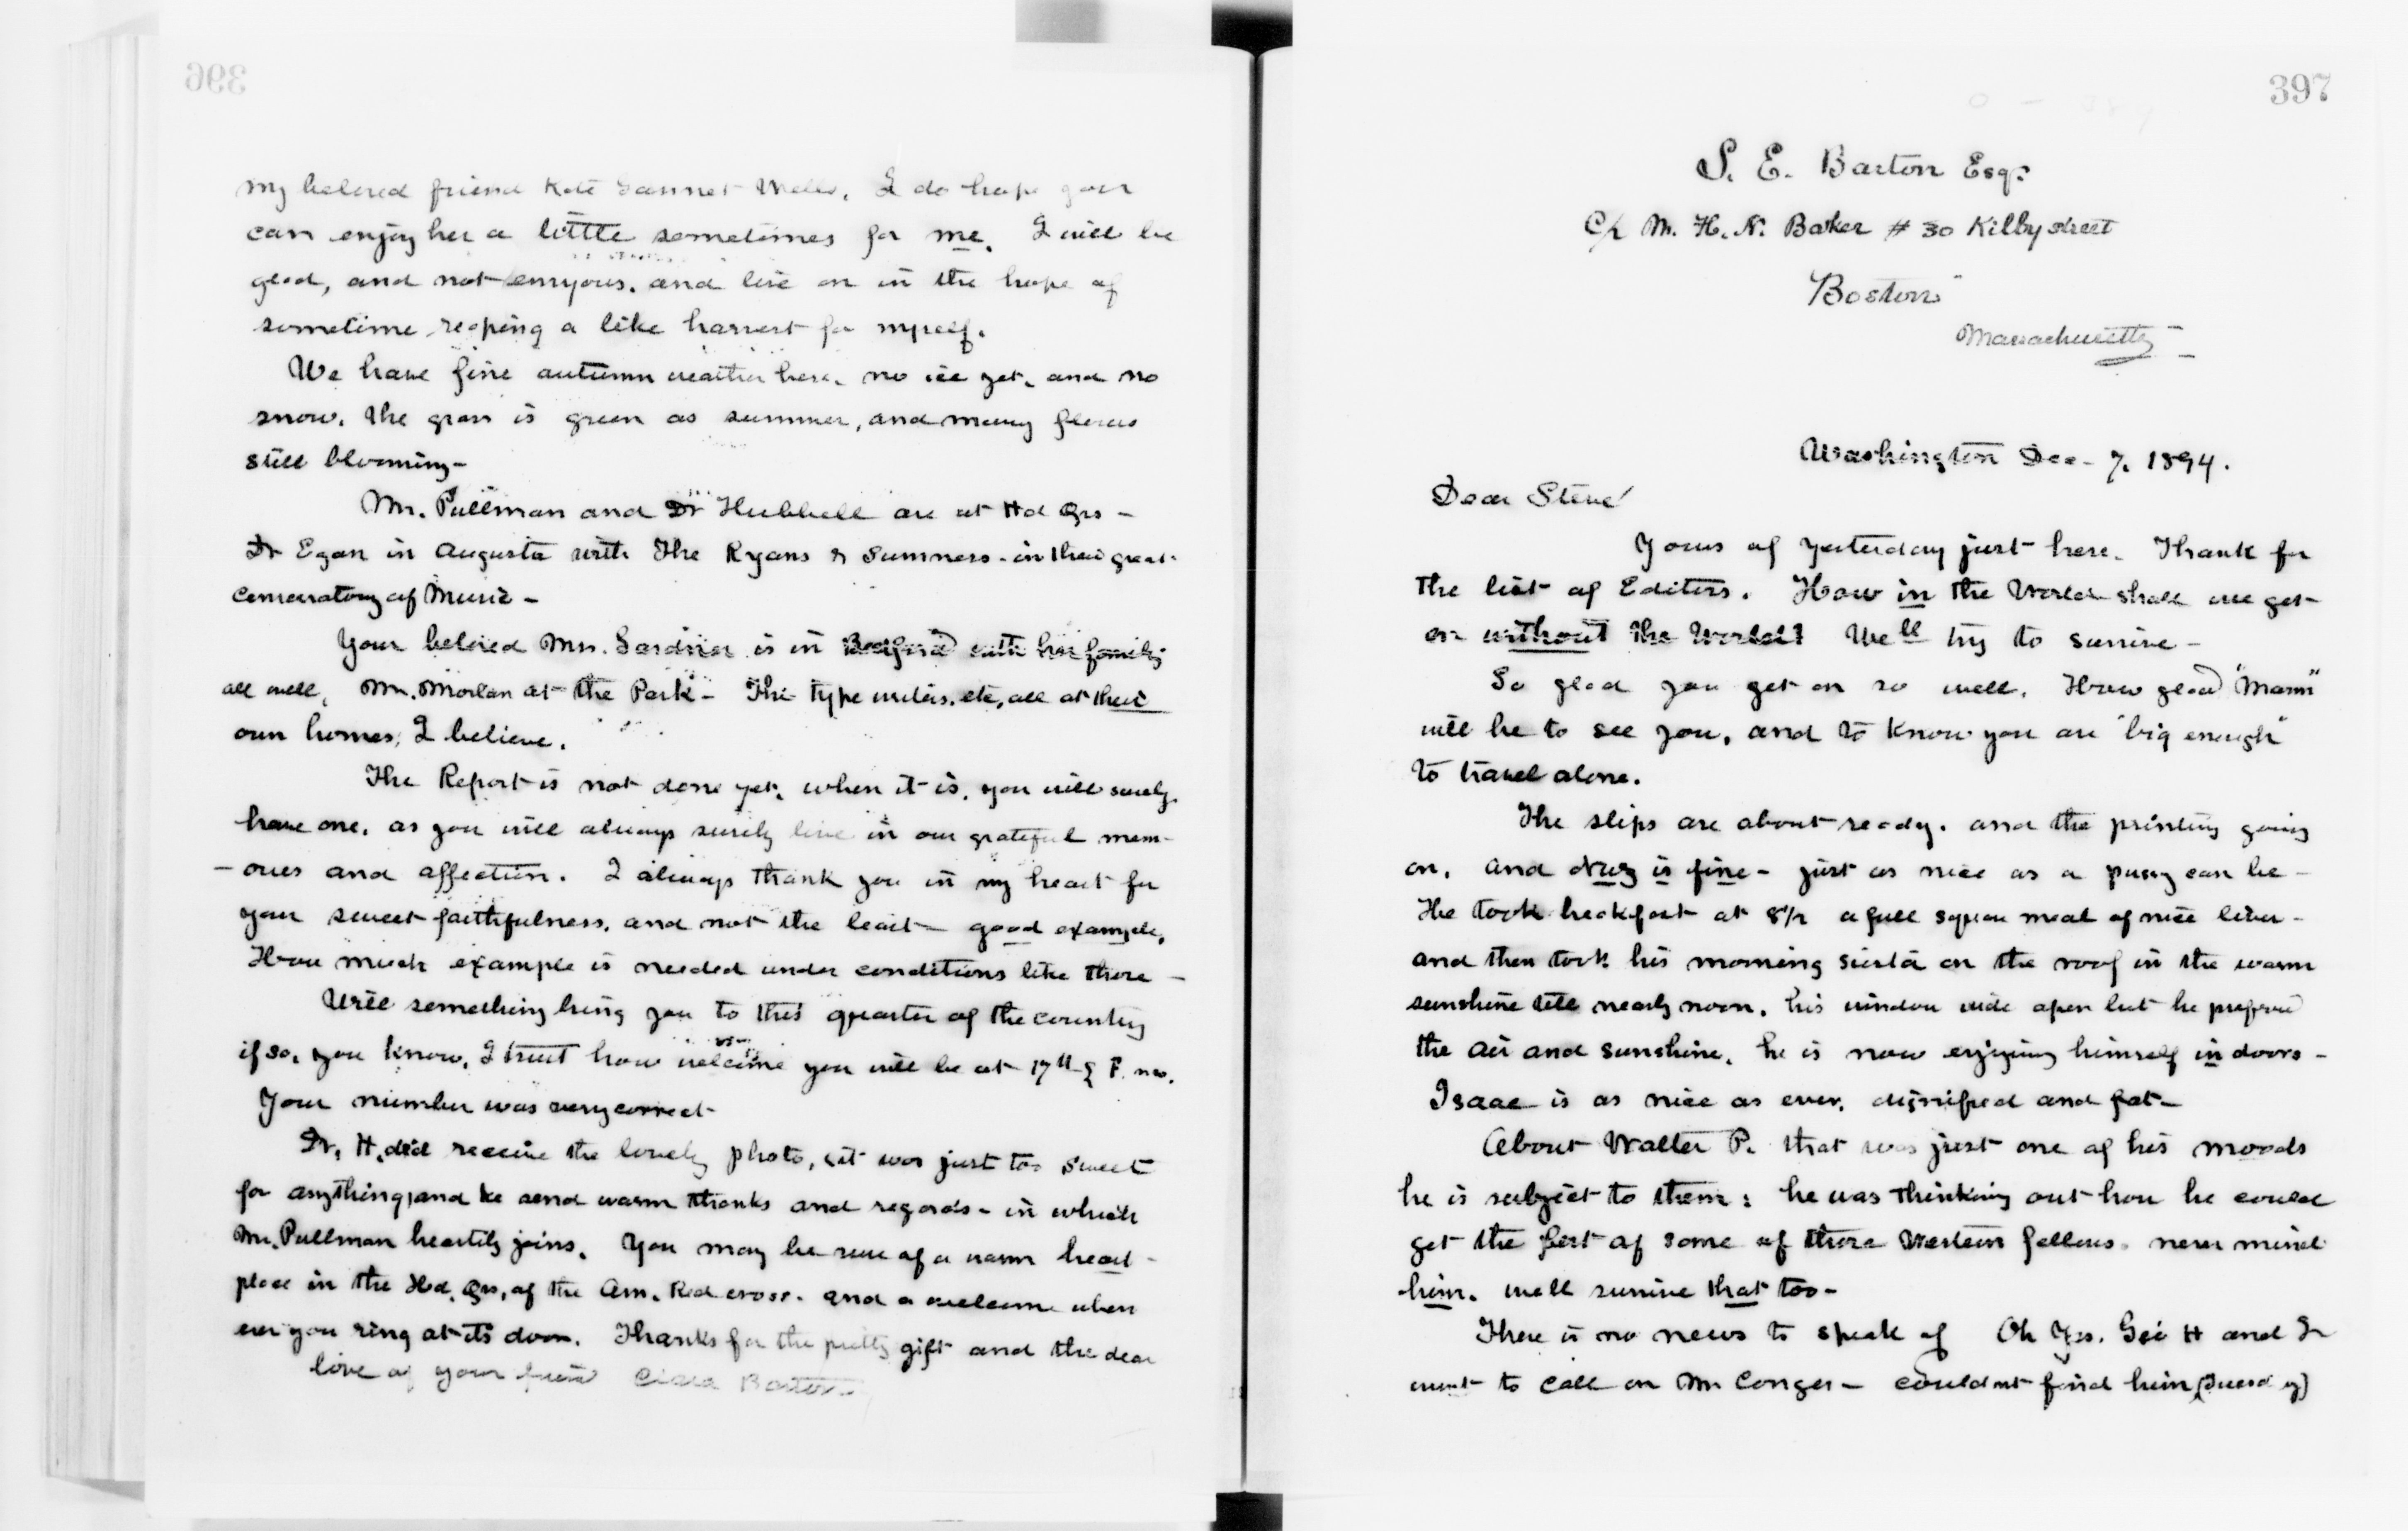 396
my beloved friend Kate Gannet Wells. I do hope you
can enjoy her a little sometimes for me. I will be
glad, and not envyous. and live on in the hope of
sometime reaping a like harvest for myself.
We have fine autumn weather here. no ice yet. and no
snow. The grass is green as summer, and many flowers
still blooming-
Mr. Pullman and Dr Hubbell are at Hd Qrs -
Dr Egan in Augusta with The Ryans & Sumners - in their great
Conservatory of Music -
Your beloved Mrs. Gardner is in Bedford with her family
all well, Mr. Morlan at the Park - The type writers. etc, all at their
own homes, I believe.
The Report is not done yet. when it is, you will surely
have one. as you will always surely live in our grateful mem-
-ories and affection. I always thank you in my heart for
your sweet faithfulness. and not the least - good example.
How much example is needed under conditions like those -
Will something bring you to this quarter of the country
if so, you know, I trust how welcome you will be at 17th & F. nw.
Your number was very correct
Dr. H. did receive the lovely photo, it was just too sweet
for anything, and he send warm thanks and regards - in which
Mr. Pullman heartily joins. You may be sure of a warm heart -
place in the Hd. Qrs, of the Am. Red cross. and a welcome when
ever you ring at its door. Thanks for the pretty gift and the dear
love of your friend Clara Barton
397
S. E. Barton Esq.
C/o M. H. N. Baker # 30 Kilby street
Boston
Massachusetts
Washington Dec - 7. 1894.
Dear Steve
Yours of yesterday just here. Thank for
the list of Editors. How in the World shall we get
on without the World? We'll try to survive -
So glad you get on so well. How glad "Mam"
will be to see you, and to know you are "big enough"
to travel alone.
The slips are about ready. and the printing going
on. and is fine - just as nice as a pussy can be -
He took breakfast at 8½ a full square meal of nice liver -
and then took his morning siesta on the roof in the warm
sunshine till nearly noon. his window wide open but he prefered
the air and sunshine. he is now enjoying himself in doors -
Isaac is as nice as ever. dignified and fat -
About Walter P. that was just one of his moods
he is subject to them: he was thinking out how he could
get the best of some of those Western fellows. never mind
him. we'll survive that too -
There is no news to speak of Oh Yes. Geo H and I
went to call on Mr Conger - couldnt find him (Tuesday)